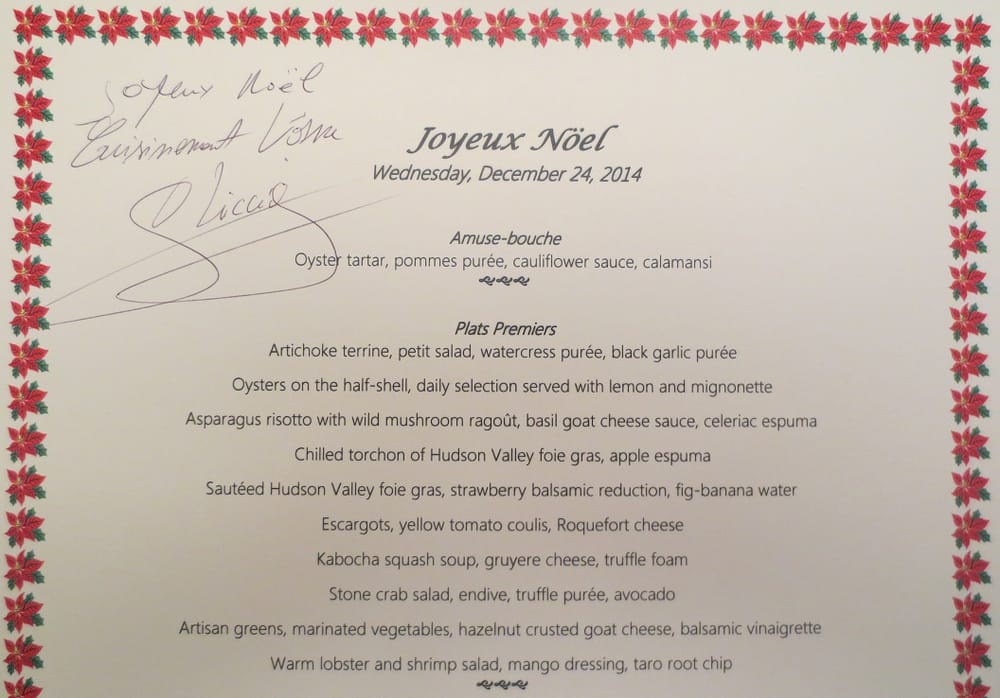 Joyeux Noël
Cuisinement Vôtre
Joyeux Nöel
Wednesday, December 24, 2014
Amuse-bouche
Oyster tartar, pommes purée, cauliflower sauce, calamansi
Plats Premiers
Artichoke terrine, petit salad, watercress purée, black garlic purée
Oysters on the half-shell, daily selection served with lemon and mignonette
Asparagus risotto with wild mushroom ragoût, basil goat cheese sauce, celeriac espuma
Chilled torchon of Hudson Valley foie gras, apple espuma
Sautéed Hudson Valley foie gras, strawberry balsamic reduction, fig-banana water
Escargots, yellow tomato coulis, Roquefort cheese
Kabocha squash soup, gruyere cheese, truffle foam
Stone crab salad, endive, truffle purée, avocado
Artisan greens, marinated vegetables, hazelnut crusted goat cheese, balsamic vinaigrette
Warm lobster and shrimp salad, mango dressing, taro root chip